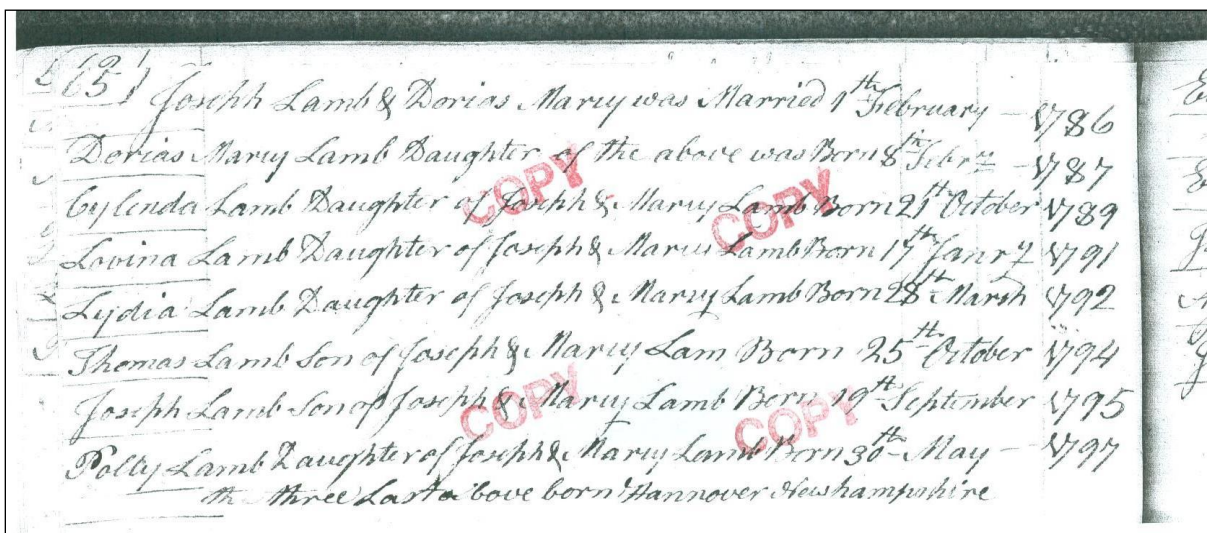 Joseph Lamb & Dorias Marcy was Married 1th February - 1786
Dorias Marcy Lamb Daughter of the above was Born 8th Febry - 1787
COPY
COPY
Cylenda Lamb Daughter of Joseph & Marcy Lamb Born 21th October 1789
Lovina Lamb Daughter of Joseph & Marcy Lamb Born 17th Janry 1791
Lydia Lamb Daughter of Joseph & Marcy Lamb Born 28th March 1792
Thomas Lamb Son of Joseph & Marcy Lam Born 25th October 1794
Joseph Lamb Son of Joseph & Marcy Lamb Born 19th September 1795
COPY
COPY
Polly Lamb Daughter of Joseph & Marcy Lamb Born 30th May - 1797
th three Last above born Hannover Newhampshire